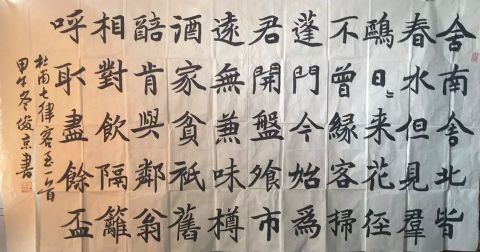 舍南舍北皆
春水但見羣
鷗日〻来花徑
不曾緣客掃
蓬門今始為
君開盤飧市
遠無兼味樽
酒家貧祇舊
醅肯與鄰翁
相對飲隔籬
呼取盡餘盃
杜甫七律客至一首
甲午冬俊京書